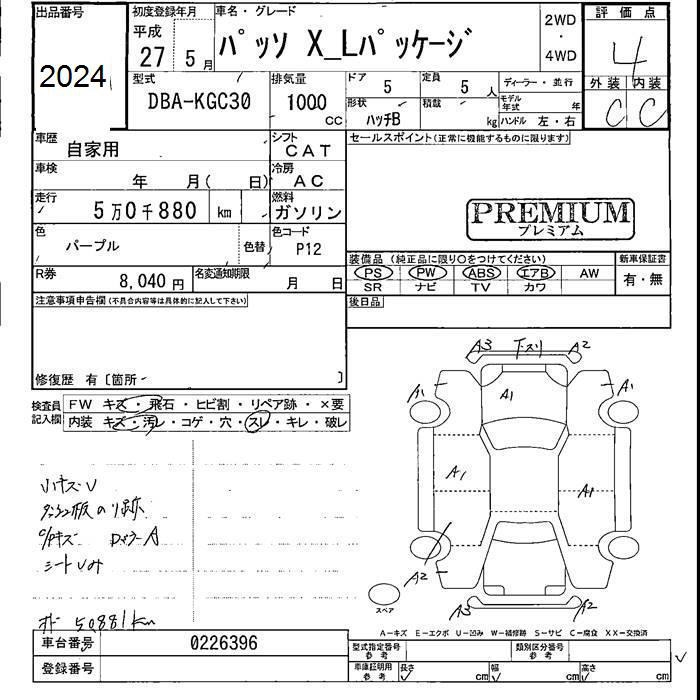 出品番号
2024
初度登録年月
平成
27 5月
車名・グレード
パッソ X_Lパッケージ
2WD
・
4WD
評価点
4
外装 内装
C C
型式
DBA-KGC30
排気量
1000
CC
ドア
5
定員
5 人
ディーラー・並行
形状
ハッチB
積載
kg
モデル年式
年
ハンドル 左・右
車歴
自家用
シフト
CAT
セールスポイント(正常に機能するものに限ります)
車検
年 月( 日)
冷房
AC
走行
5万0千880 km
燃料
ガソリン
PREMIUM
プレミアム
色
パープル
色替
色コード
P12
装備品 (純正品に限り○をつけてください)
新車保証書
PS PW ABS エアB AW
SR ナビ TV カワ
有・無
R券
8,040 円
名変通知期限
月 日
後日品
注意事項申告欄(不具合内容等は具体的に記入して下さい)
修復歴 有〔箇所 〕
検査員
記入欄
FW キズ・飛石・ヒビ割・リペア跡・×要
内装 キズ・汚レ・コゲ・穴・スレ・キレ・破レ
A3 下スリ A2
A1 A1 A1
A1 A1
A2
A3 A2
スペア
小キズU
C/Pキズ
シートUみ
50881km
A-キズ E-エクボ U-凹み W-補修跡 S-サビ C-腐食 XX-交換済
車台番号
0226396
登録番号
型式指定番号
参考
類別区分番号
参考
車庫証明用
参考
長さ cm
幅 cm
高さ cm